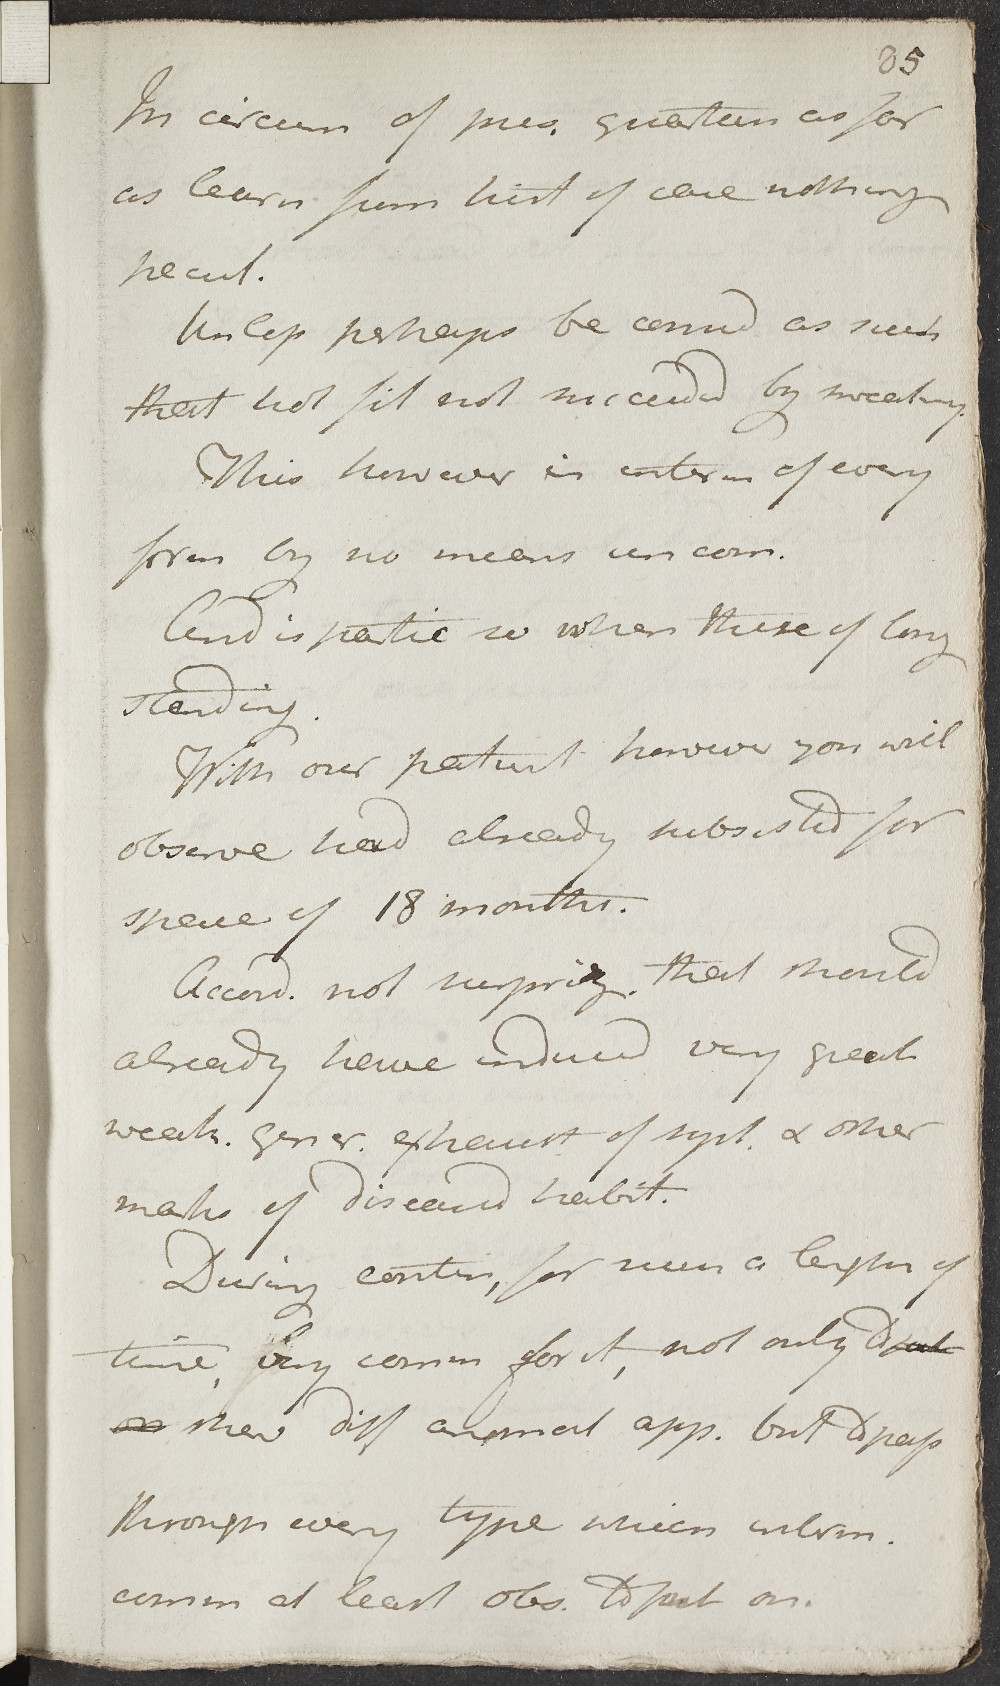 85
In circum of pres. quartan as far
as learn from hist of case nothing
pecul.
Unless perhaps be consid as such
that hot fit not succeeded by sweating.
This however in interm of every
form by no means uncom.
And is partic so when these of long
standing.
With our patient however you will
observe had already subsisted for
space of 18 months.
Accord. not surprizg. that should
already have induced very great
weak. gener. exhaust of syst. & other
marks of diseased habit.
During contin, for such a length of
time, very comm for it, not only to put
on shew diff anomal app. but to pass
through every type which interm.
comm at least obs. to put on.